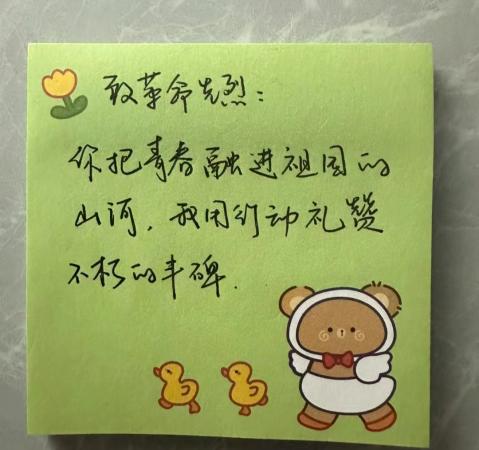 致革命先烈：
你把青春融进祖国的
山河，我用行动礼赞
不朽的丰碑.